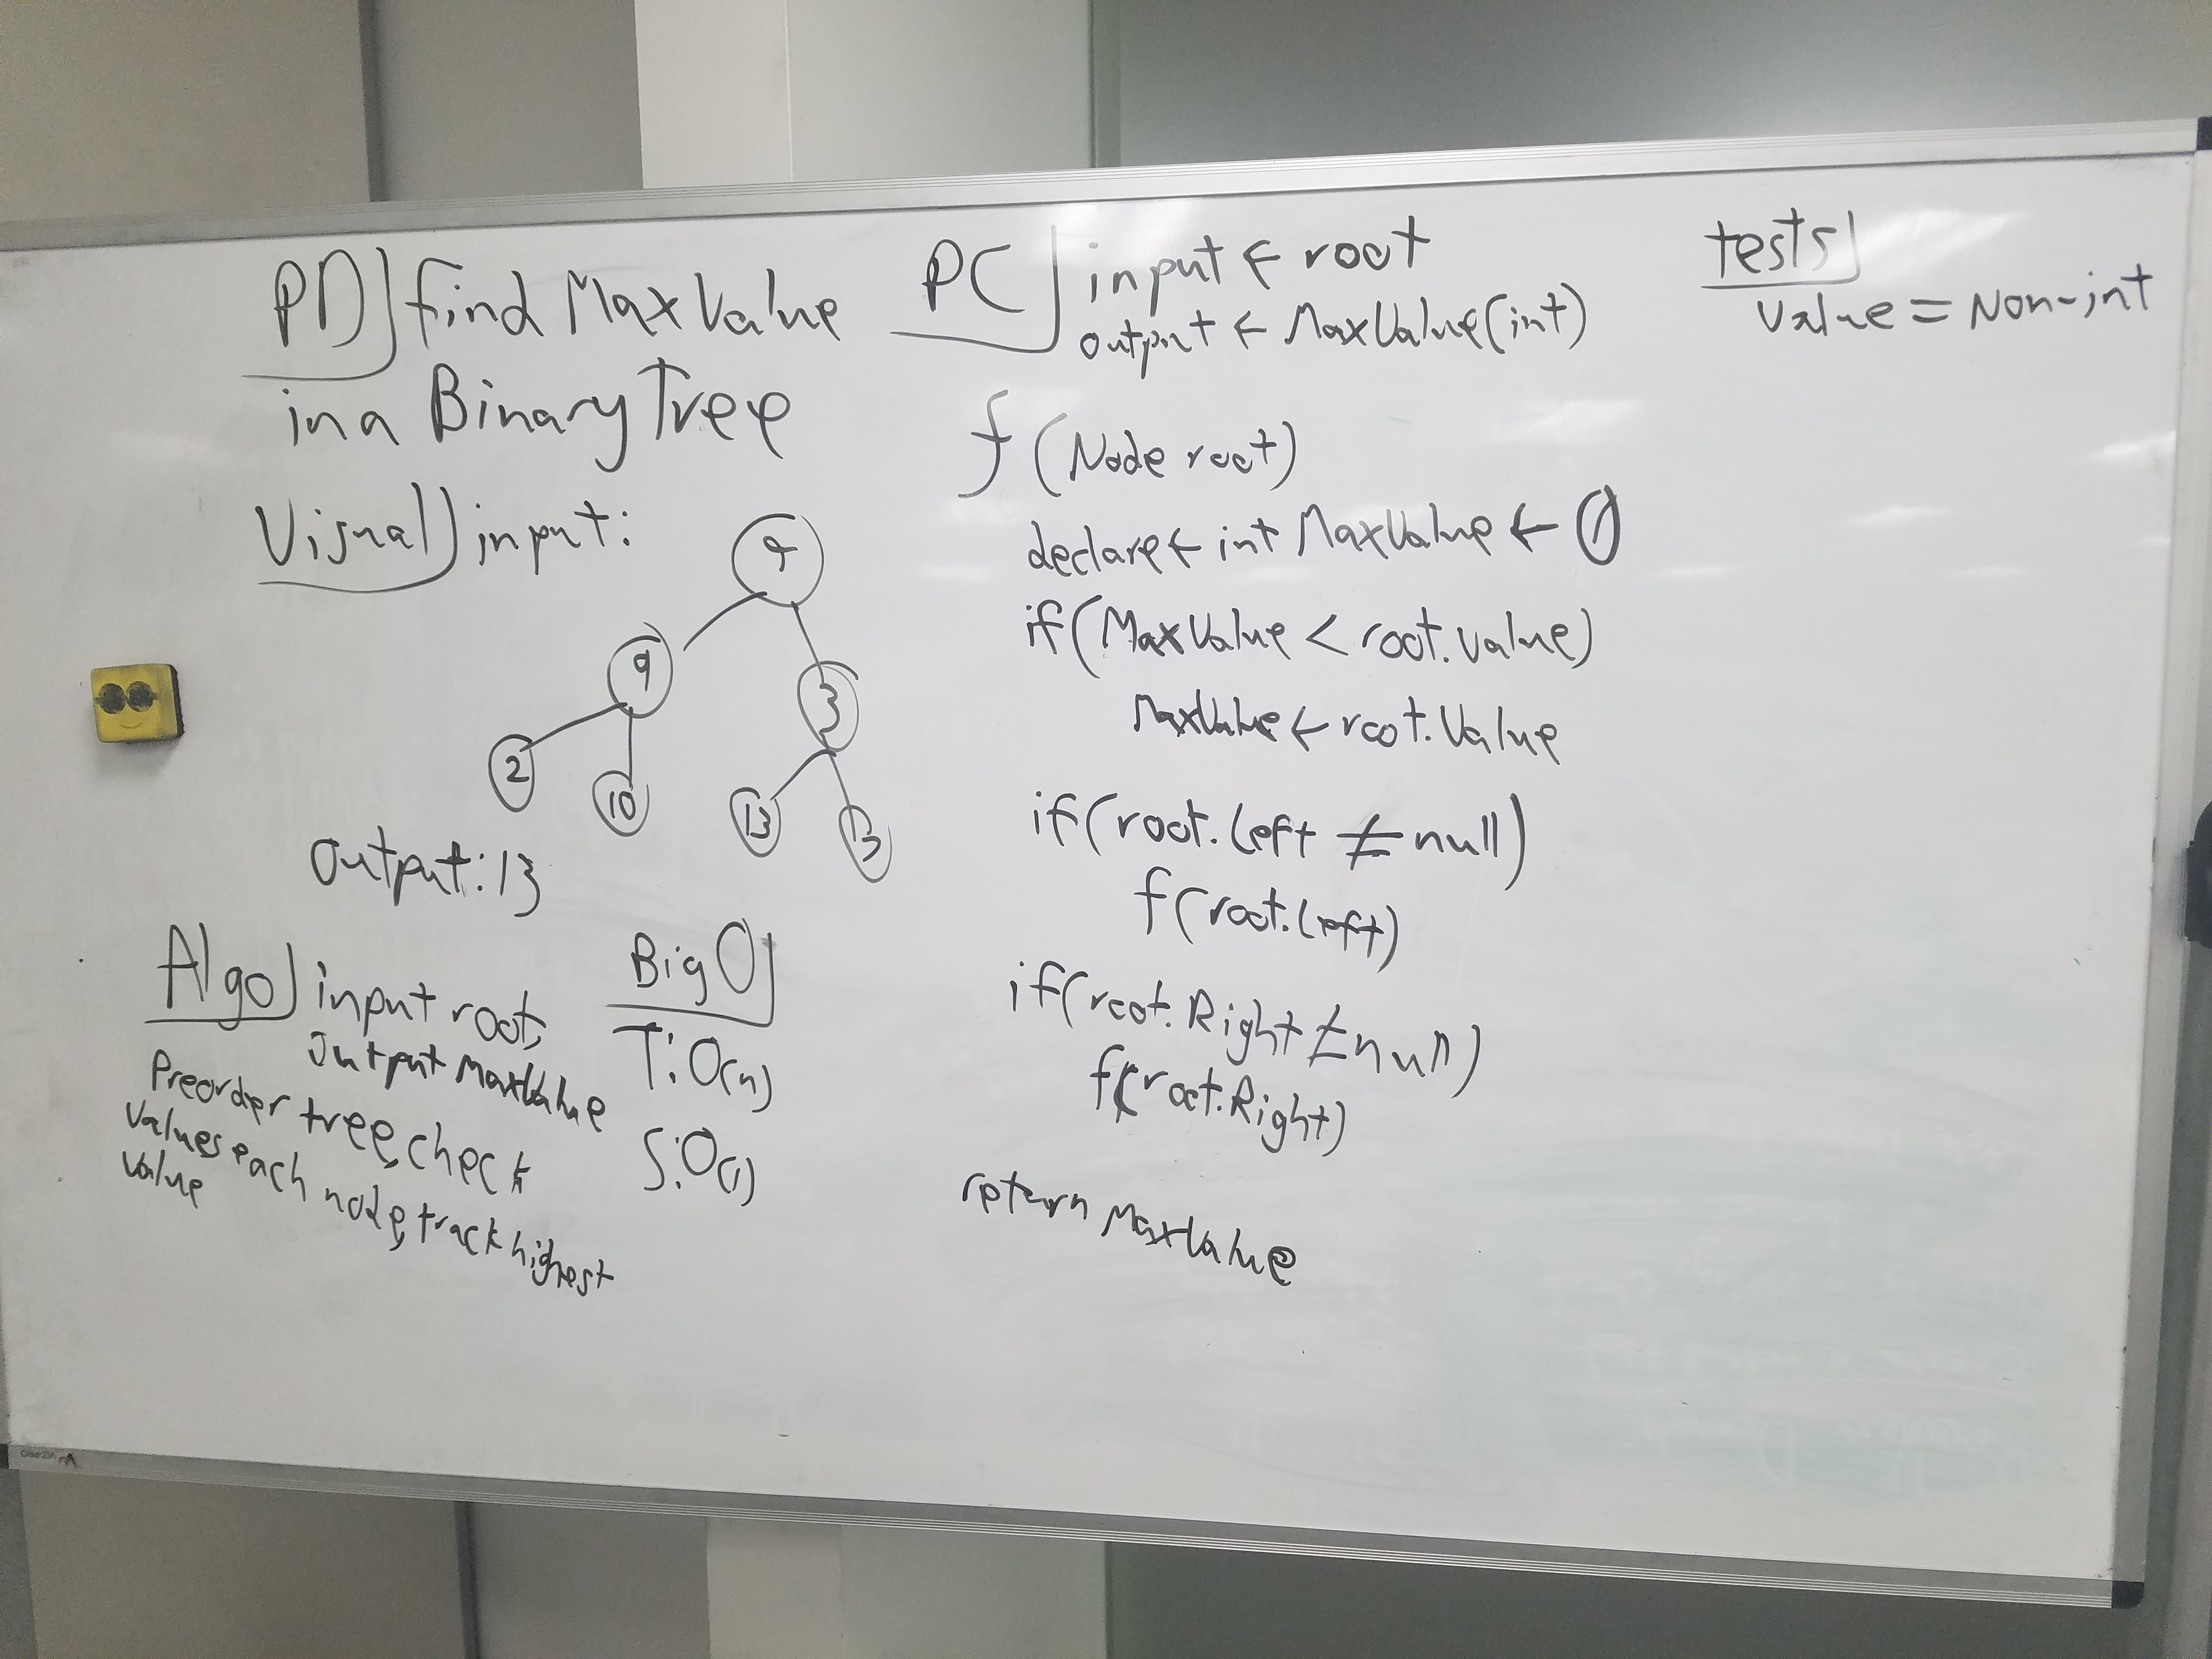 PD) find MaxValue
in a Binary Tree
Visual) input:
9
9
3
2
10
13
13
output: 13
Algo) input root,
output MaxValue
Preorder tree, check
values each node, track highest
value
Big O
T: O(n)
S: O(1)
PC) input ← root
output ← MaxValue(int)
f (Node root)
declare ← int MaxValue ← 0
if (MaxValue < root.value)
MaxValue ← root.Value
if (root.Left ≠ null)
f (root.Left)
if (root.Right ≠ null)
f (root.Right)
return MaxValue
tests)
Value = Non-int